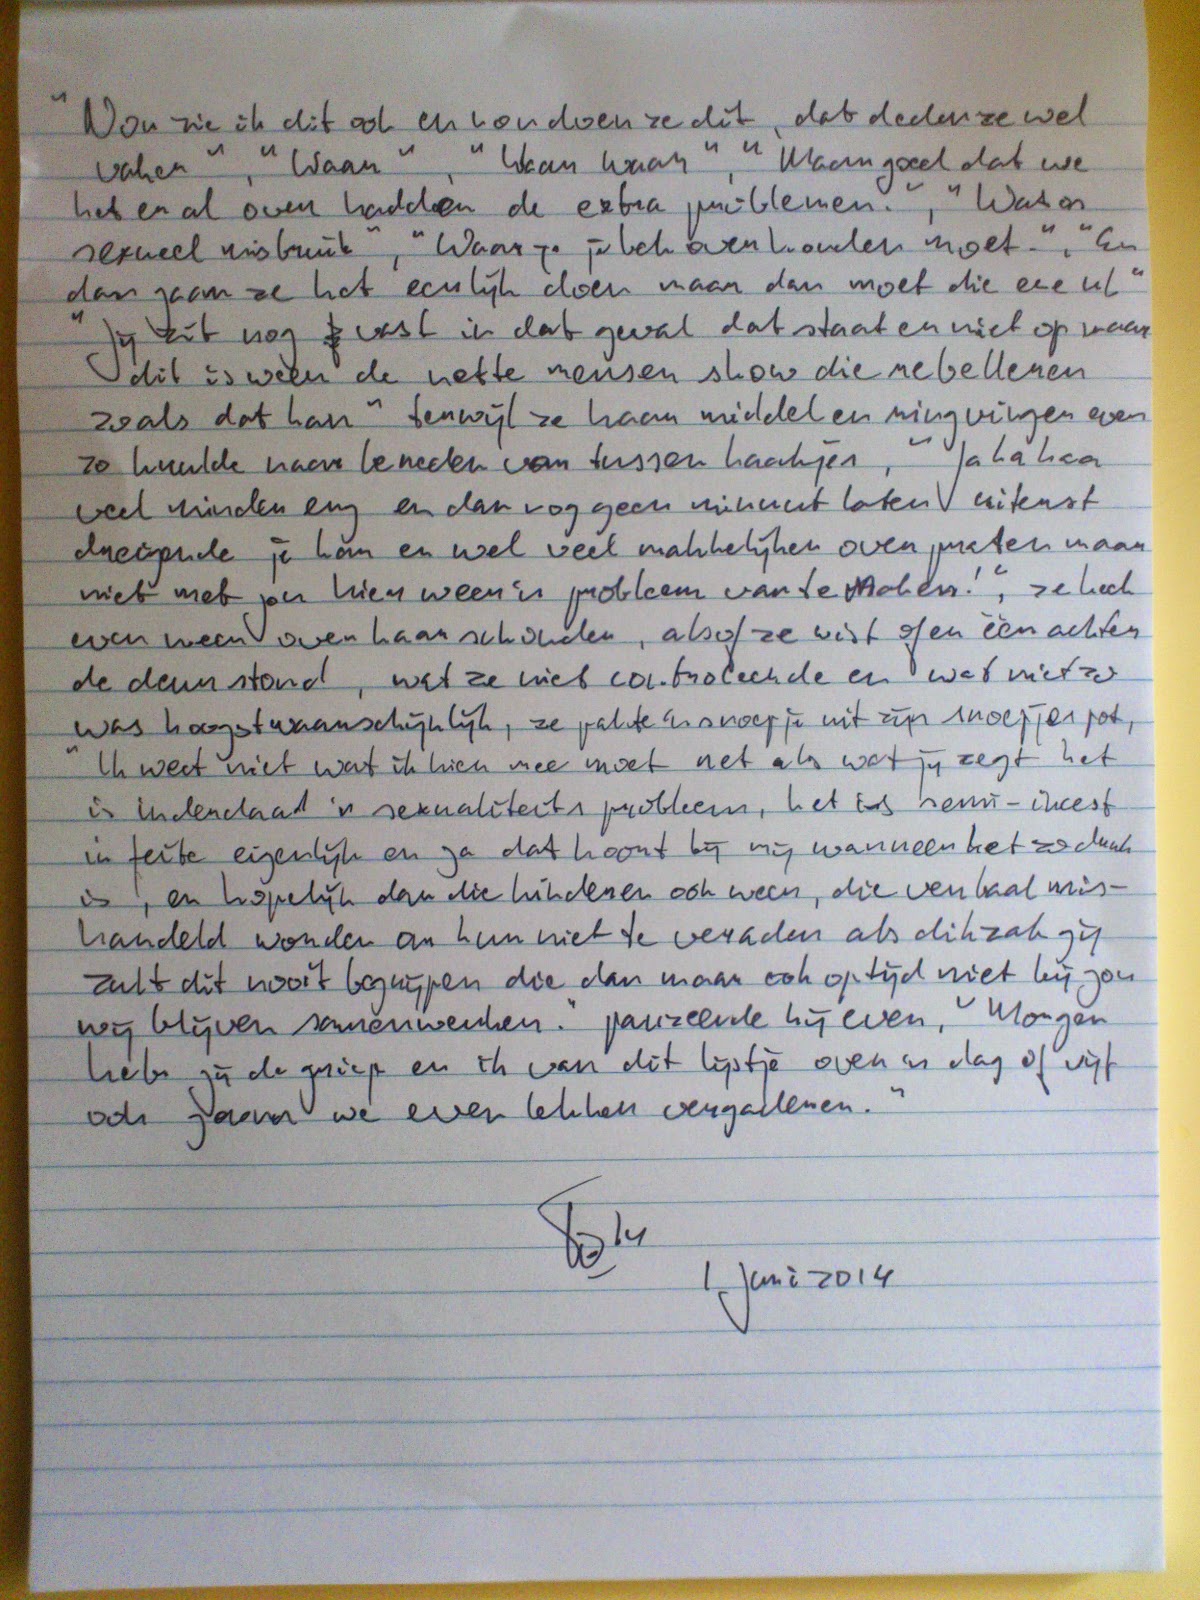 "Nou zie ik dit ook en hou doen ze dit, dat deden ze wel
vaker", "Waar", "Waar waar", "Maar goed dat we
het er al over hadden de extra problemen.", "Wat
sexueel misbruik", "Waar je je bek over houden moet.", "En
dan gaan ze het eerlijk doen maar dan moet die ene uit"
"Jij zit nog vast in dat geval dat staat er niet op maar
dit is weer de nette mensen show die rebelleren
zoals dat kan" terwijl ze haar middel en ringvinger even
zo krulde naar beneden van tussen haakjes, "Ja ha haa
veel minder eng en dan nog geen minuut laten uiterst
dreigende je kan er wel veel makkelijker over praten maar
niet met jou hier weer 'n probleem van te maken!", ze keek
even weer over haar schouder, alsof ze wist of er één achter
de deur stond, wat ze niet controleerde en wat niet zo
was hoogstwaarschijnlijk, ze pakte 'n snoepje uit zijn snoepjespot,
"Ik weet niet wat ik hier mee moet net als wat jij zegt het
is inderdaad 'n sexualiteits probleem, het is semi-incest
in feite eigenlijk en ja dat hoort bij mij wanneer het zo druk
is, en hopelijk dan die kinderen ook weer, die verbaal mis-
handeld worden om hun niet te veraden als dikzak gij
zult dit nooit begrijpen die dan maar ook op tijd niet bij jou
wij blijven samenwerken." pauzeerde hij even, "Morgen
heb jij de griep en ik van dit lijstje over 'n dag of vijf
ook gaan we even lekker vergaderen."
1 juni 2014